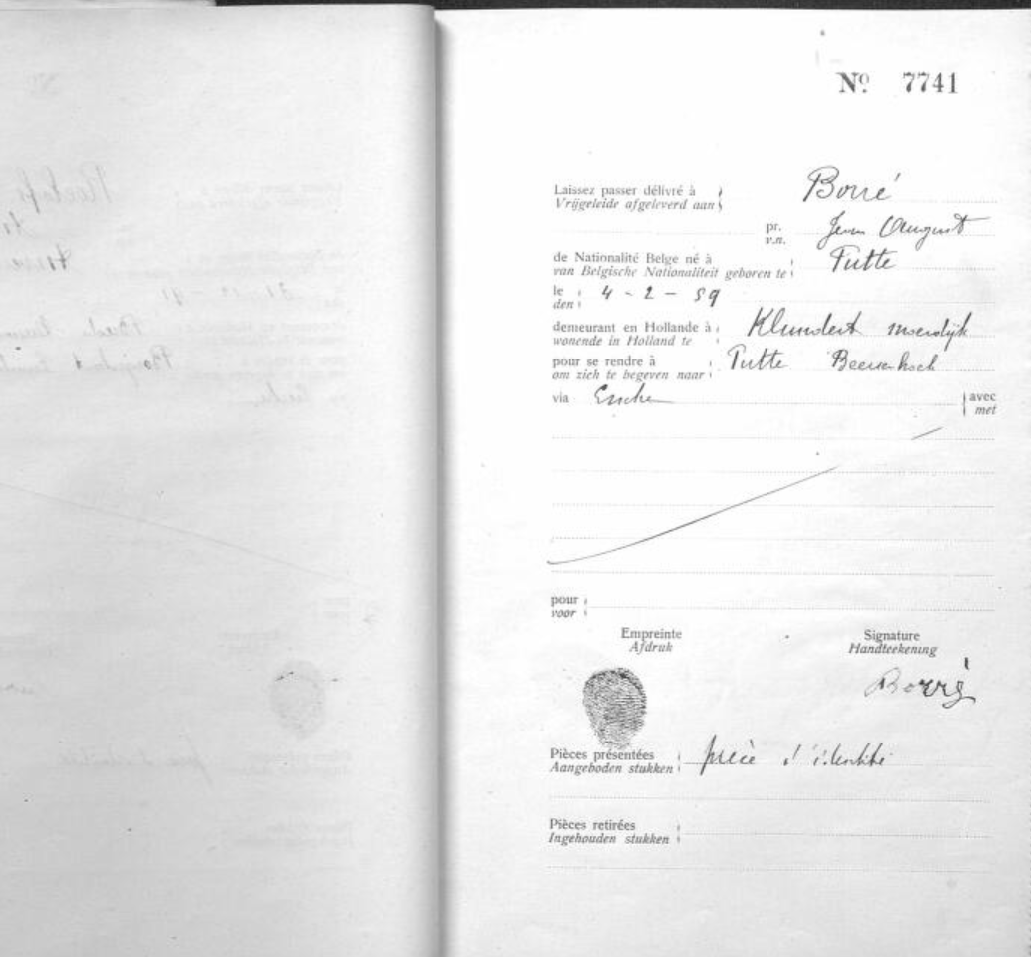 Nº 7741
Laissez passer délivré à
Vrijgeleide afgeleverd aan
Borré
pr.
v.n.
Jean August
de Nationalité Belge né à
van Belgische Nationaliteit geboren te
Putte
le
den
4 - 2 - 59
demeurant en Hollande à
wonende in Holland te
Klundert moerdijk
pour se rendre à
om zich te begeven naar
Putte
via Esschen
avec
met
pour
voor
Empreinte
Afdruk
Signature
Handteekening
Borré
Pièces présentées
Aangeboden stukken
pièce d'identité
Pièces retirées
Ingehouden stukken